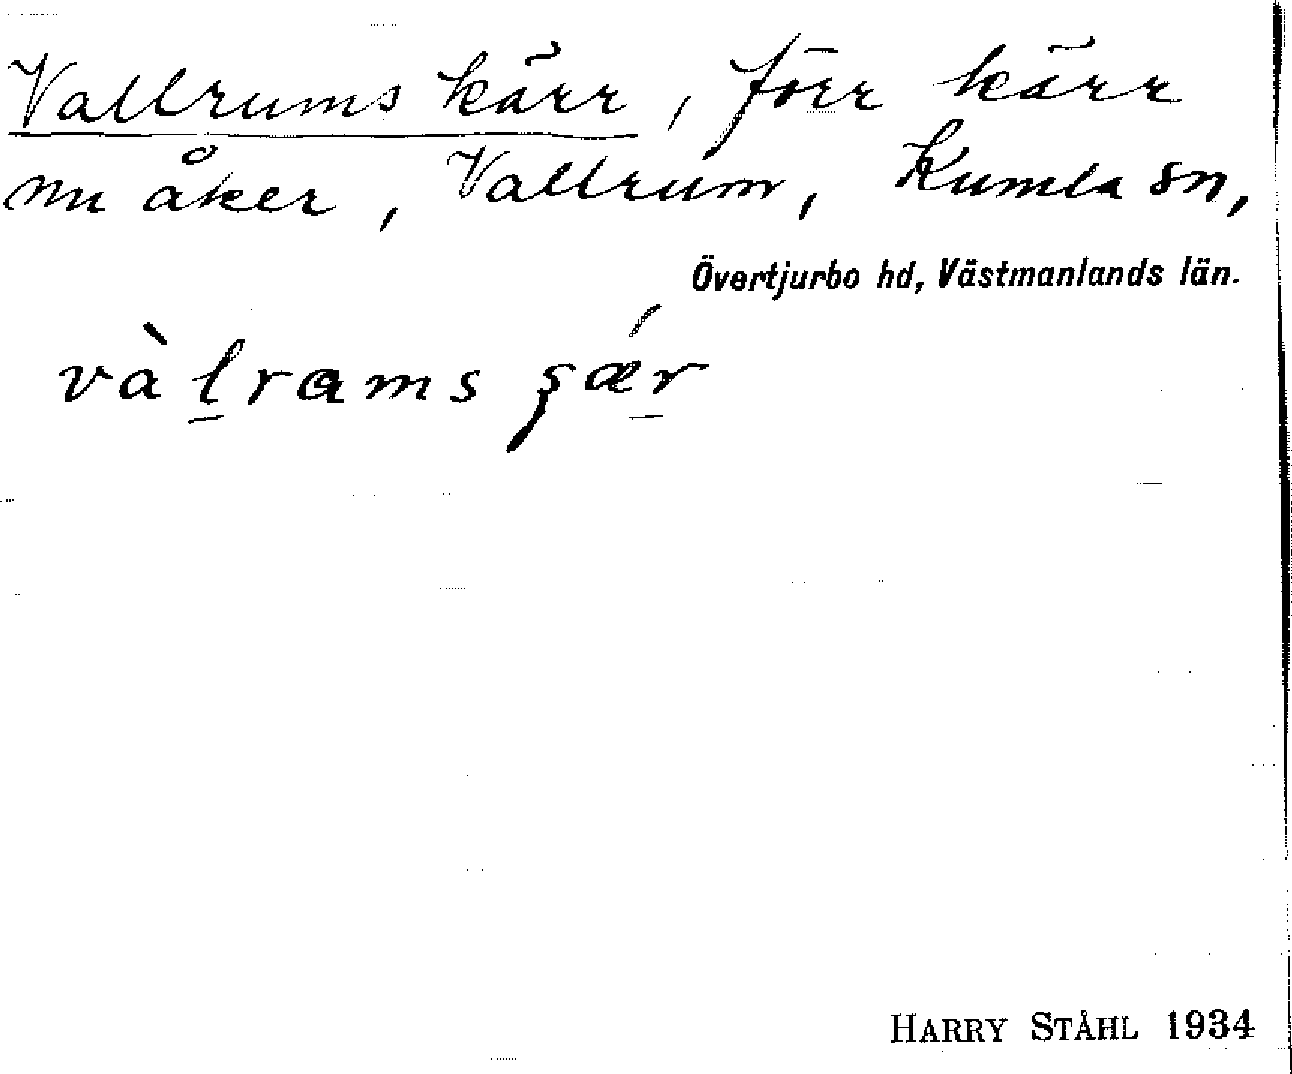 Vallrums kärr, förr kärr
nu åker, Vallrum, Kumla sn,
Övertjurbo hd, Västmanlands län.
và l̲rams şǽr̲
HARRY STÅHL 1934